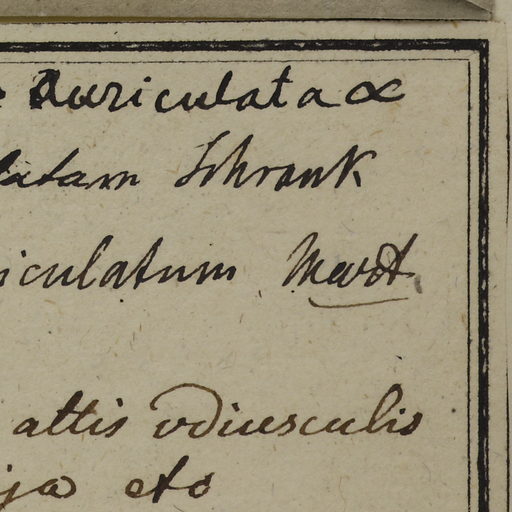 Auriculata α
latam Schrank
iculatum
altis udiusculis
ja etc